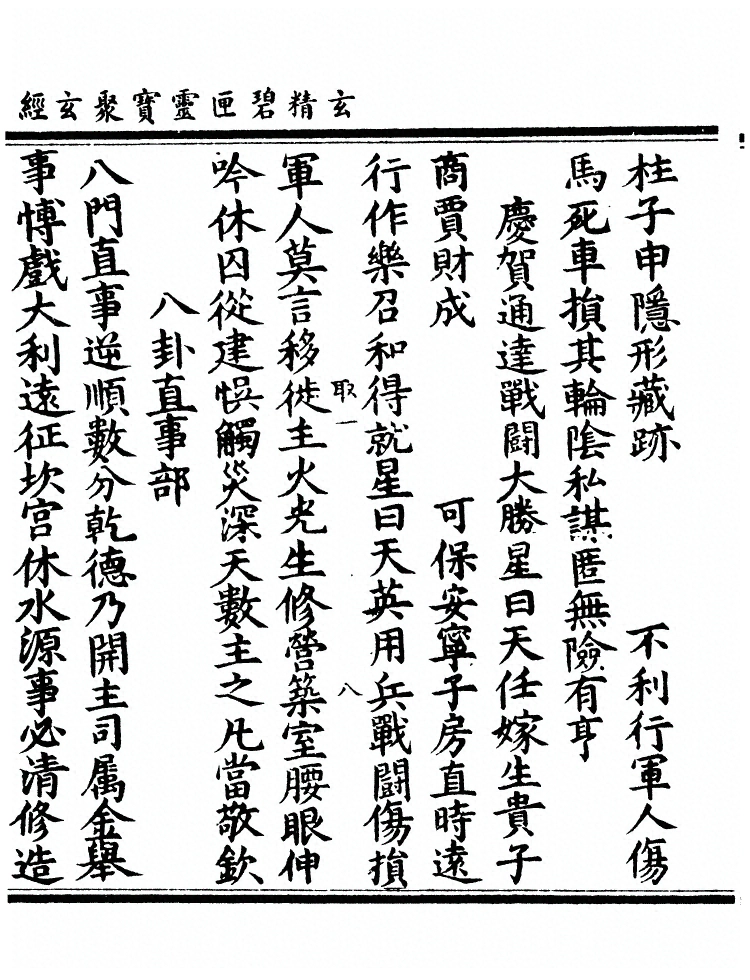 玄精碧匣靈寶聚玄經
柱子申隱形藏跡　不利行軍人傷
馬死車損其輪陰私謀匿無險有亨
慶賀通達戰鬪大勝星曰天任嫁生貴子
商賈財成　可保安寧子房直時遠
行作樂召和得就星曰天英用兵戰鬪傷損
取一　八
軍人莫言移徙主火光生修營築室腰眼伸
吟休囚從建悞觸災深天數主之凡當敬欽
八卦直事部
八門直事逆順數分乾德乃開主司属金舉
事愽戲大利遠征坎宮休水源事必清修造